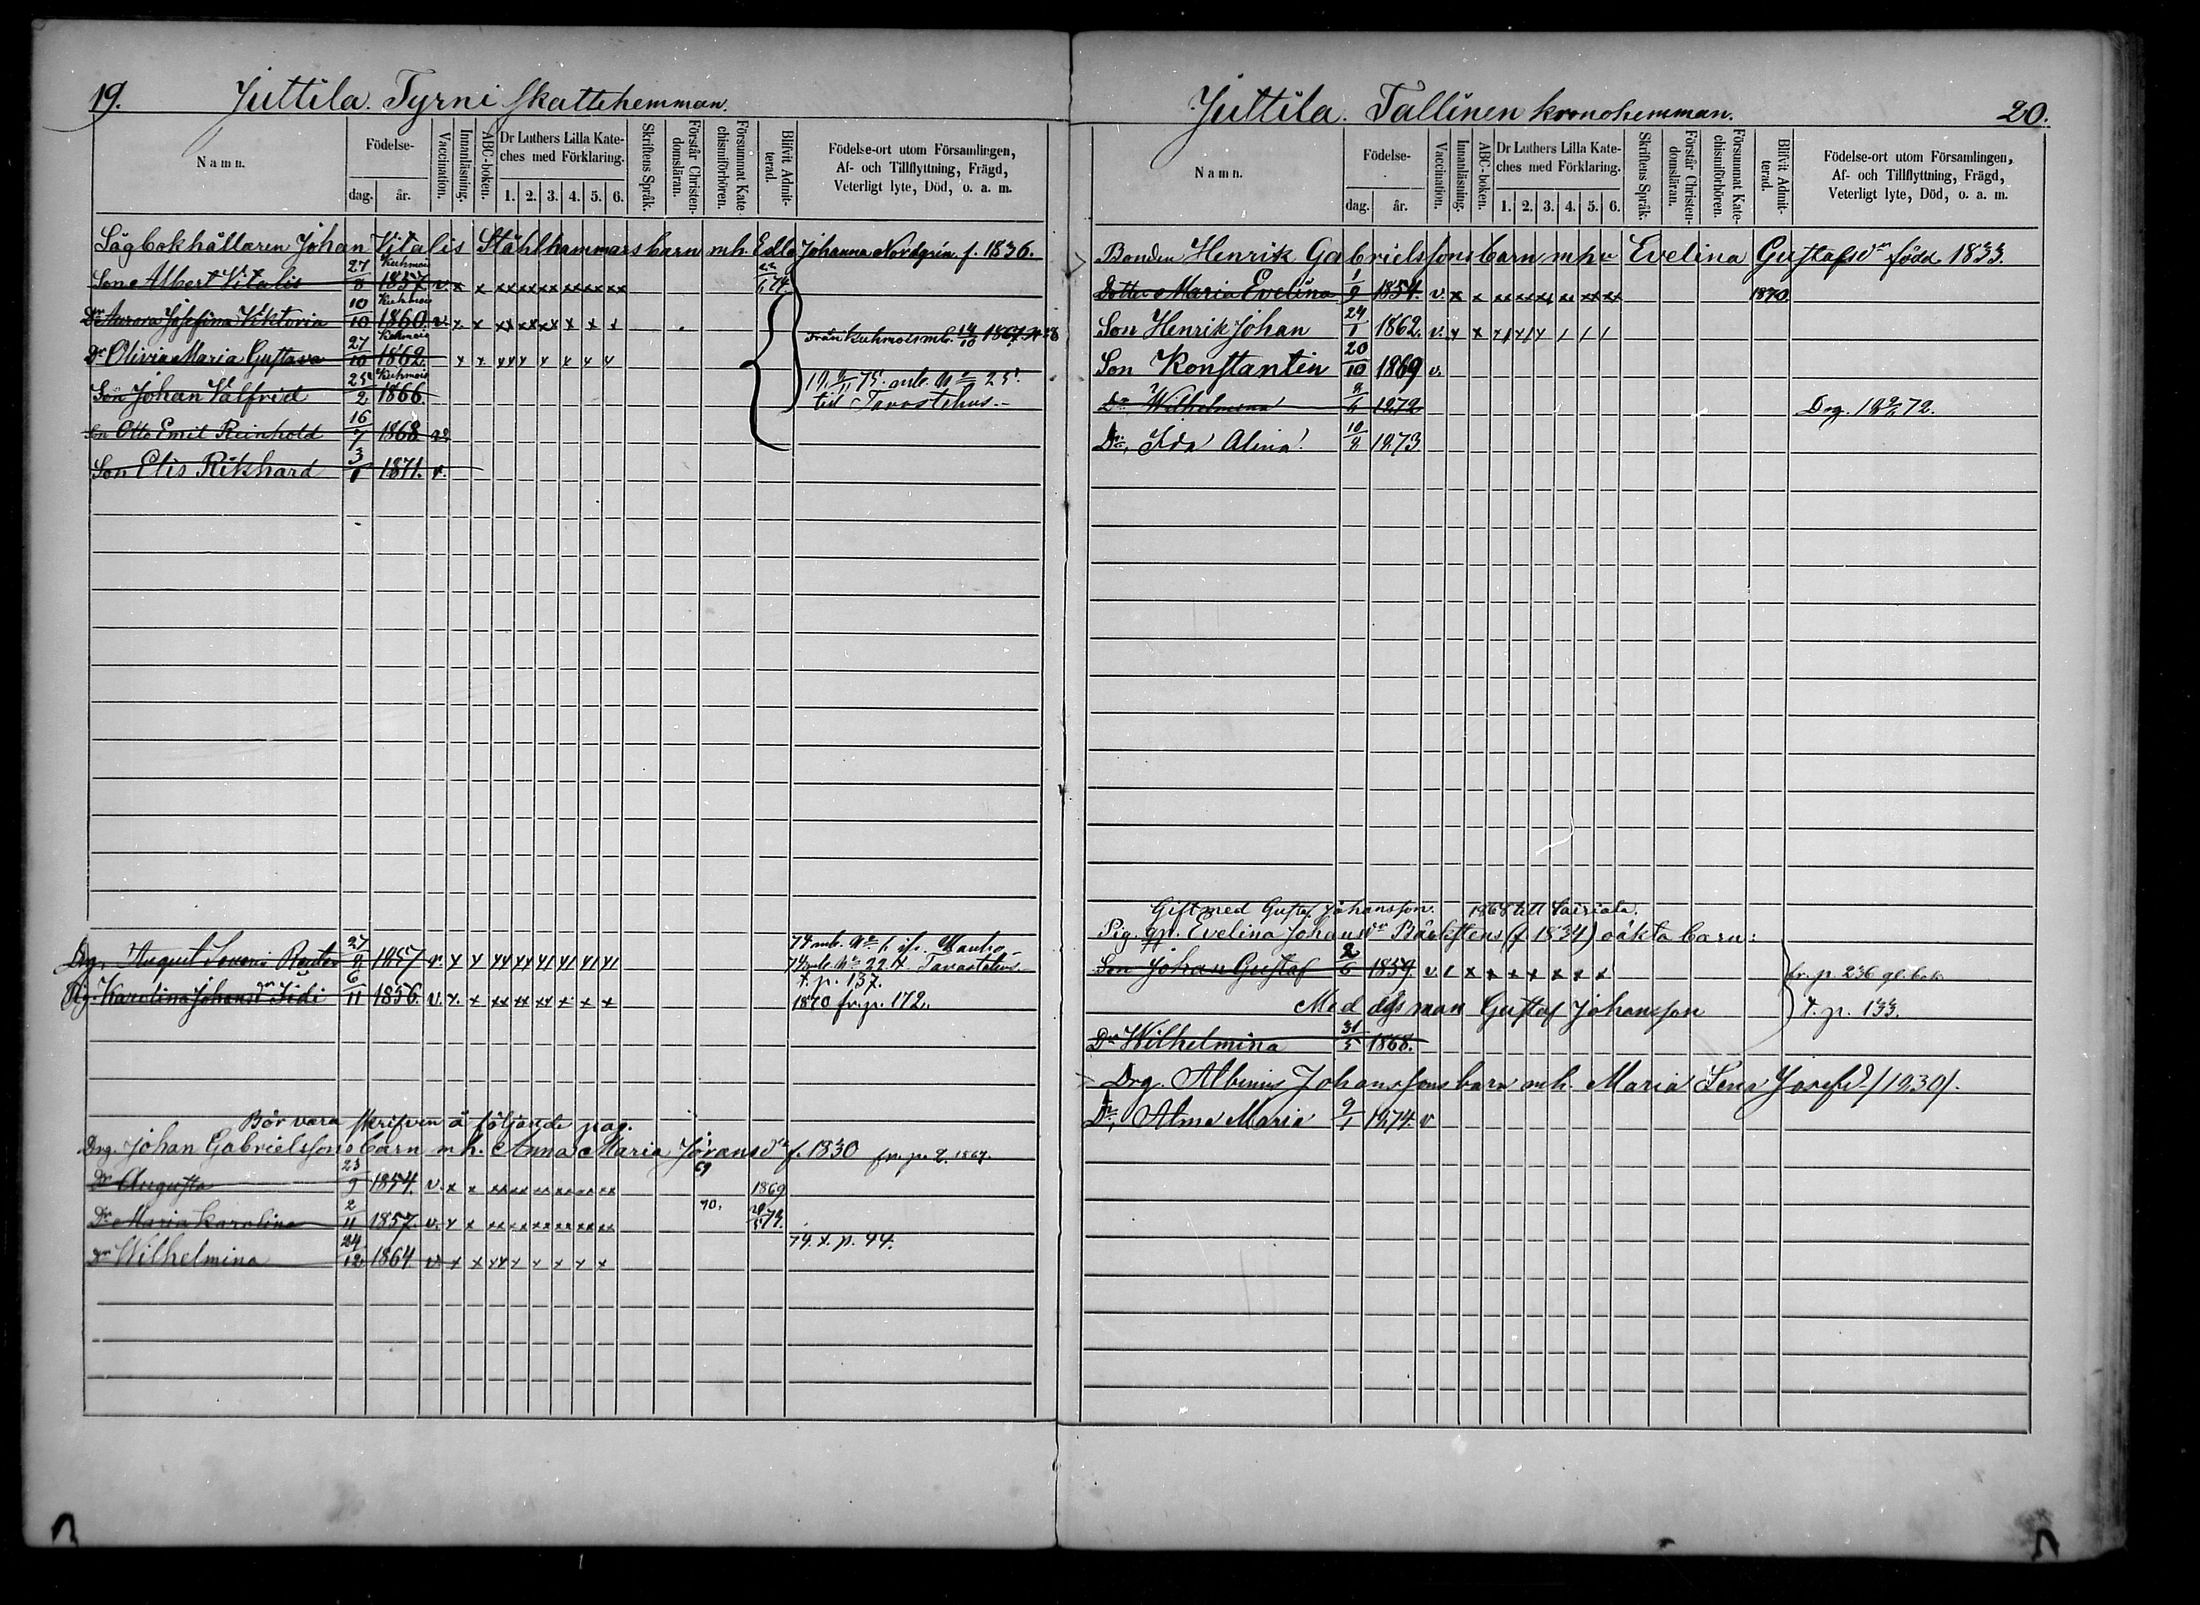 19. Juttila. Tyrni skattehemman.
Namn. Födelse- dag. år. Vaccination. Innanläsning. ABC-boken. Dr Luthers Lilla Kateches med Förklaring. 1. 2. 3. 4. 5. 6. Skriftens Språk. Förstår Christendomsläran. Försummat Katechismiförhören. Blifvit Admitterad. Födelse-ort utom Församlingen, Af- och Tillflyttning, Frägd, Veterligt lyte, Död, o. a. m.
Sågbokhållaren Johan Vitalis Ståhlhammars barn mh. Edla Johanna Nordgrén f. 1836.
Son Albert Vitalis 27/8 Kuhmois 1857. v. x x xx xx xx xx xx xx
Dr Aurora Josefina Viktoria 10/10 Kuhmois 1860. v. x x xx xx xx x x x
från Kuhmois mb. 14/10 1867 N 18
Dr Olivia Maria Gustava 27/10 Kuhmois 1862. x x xx x x x x x
18 /11 75. mb. No 25.
Son Johan Valfrid 25/2 Kuhmois 1866.
till Tavastehus.
Son Otto Emil Reinhold 16/7 1868 v.
Son Elis Rikhard 3/1 1871. v.
Drg. August 27/9 1857 v. x x
74 mb. No 22 t. Tavastehus
t. p. 137.
Pig. Karolina Johansdr Iidi 6/11 1856. v. x x xx xx xx x x x 1870 fr. p. 172.
Bör vara skrifven å följande pag.
Drg. Johan Gabrielssons barn mh. Anna Maria Göransdr f. 1830 fr. p. 2. 1867
69
Dr Augusta 23/9 1854. v. x x xx xx xx xx xx xx 1869
Dr Maria Karolina 2/11 1857. v. x x xx xx xx xx xx xx 70.
74. t. p. 94.
Dr Wilhelmina 24/12 1864 v x x xx x x x x x
Juttila. Tallinen kronohemman. 20.
Namn. Födelse- dag. år. Vaccination. Innanläsning. ABC-boken. Dr Luthers Lilla Kateches med Förklaring. 1. 2. 3. 4. 5. 6. Skriftens Språk. Förstår Christendomsläran. Försummat Katechismiförhören. Blifvit Admitterad. Födelse-ort utom Församlingen, Af- och Tillflyttning, Frägd, Veterligt lyte, Död, o. a. m.
Bonden Henrik Gabrielssons barn mhu Evelina Gustafsdr född 1833.
Dotter Maria Evelina 1/9 1854. v. x x xx xx xx xx xx xx 1870
Son Henrik Johan 24/1 1862. v. x x
Son Konstantin 20/10 1869 v.
Dr Wilhelmina 1872
Dr, Ida Alina 10/8 1873.
Gift med Gustaf Johansson. 1868 till Sairiala.
Pig. Evelina Johansdr (f 1834) oäkta barn:
Son Johan Gustaf 2/6 1859. v. x x x x x x x fr. p. 236 gl. bok.
Med dess man Gustaf Johansson t. p. 133.
Dr Wilhelmina 31/5 1868.
Drg. Albinus Johanssons barn mh. Maria Lena Josefsd. /1830/.
Dr, Alma Maria 9/1 1874. v